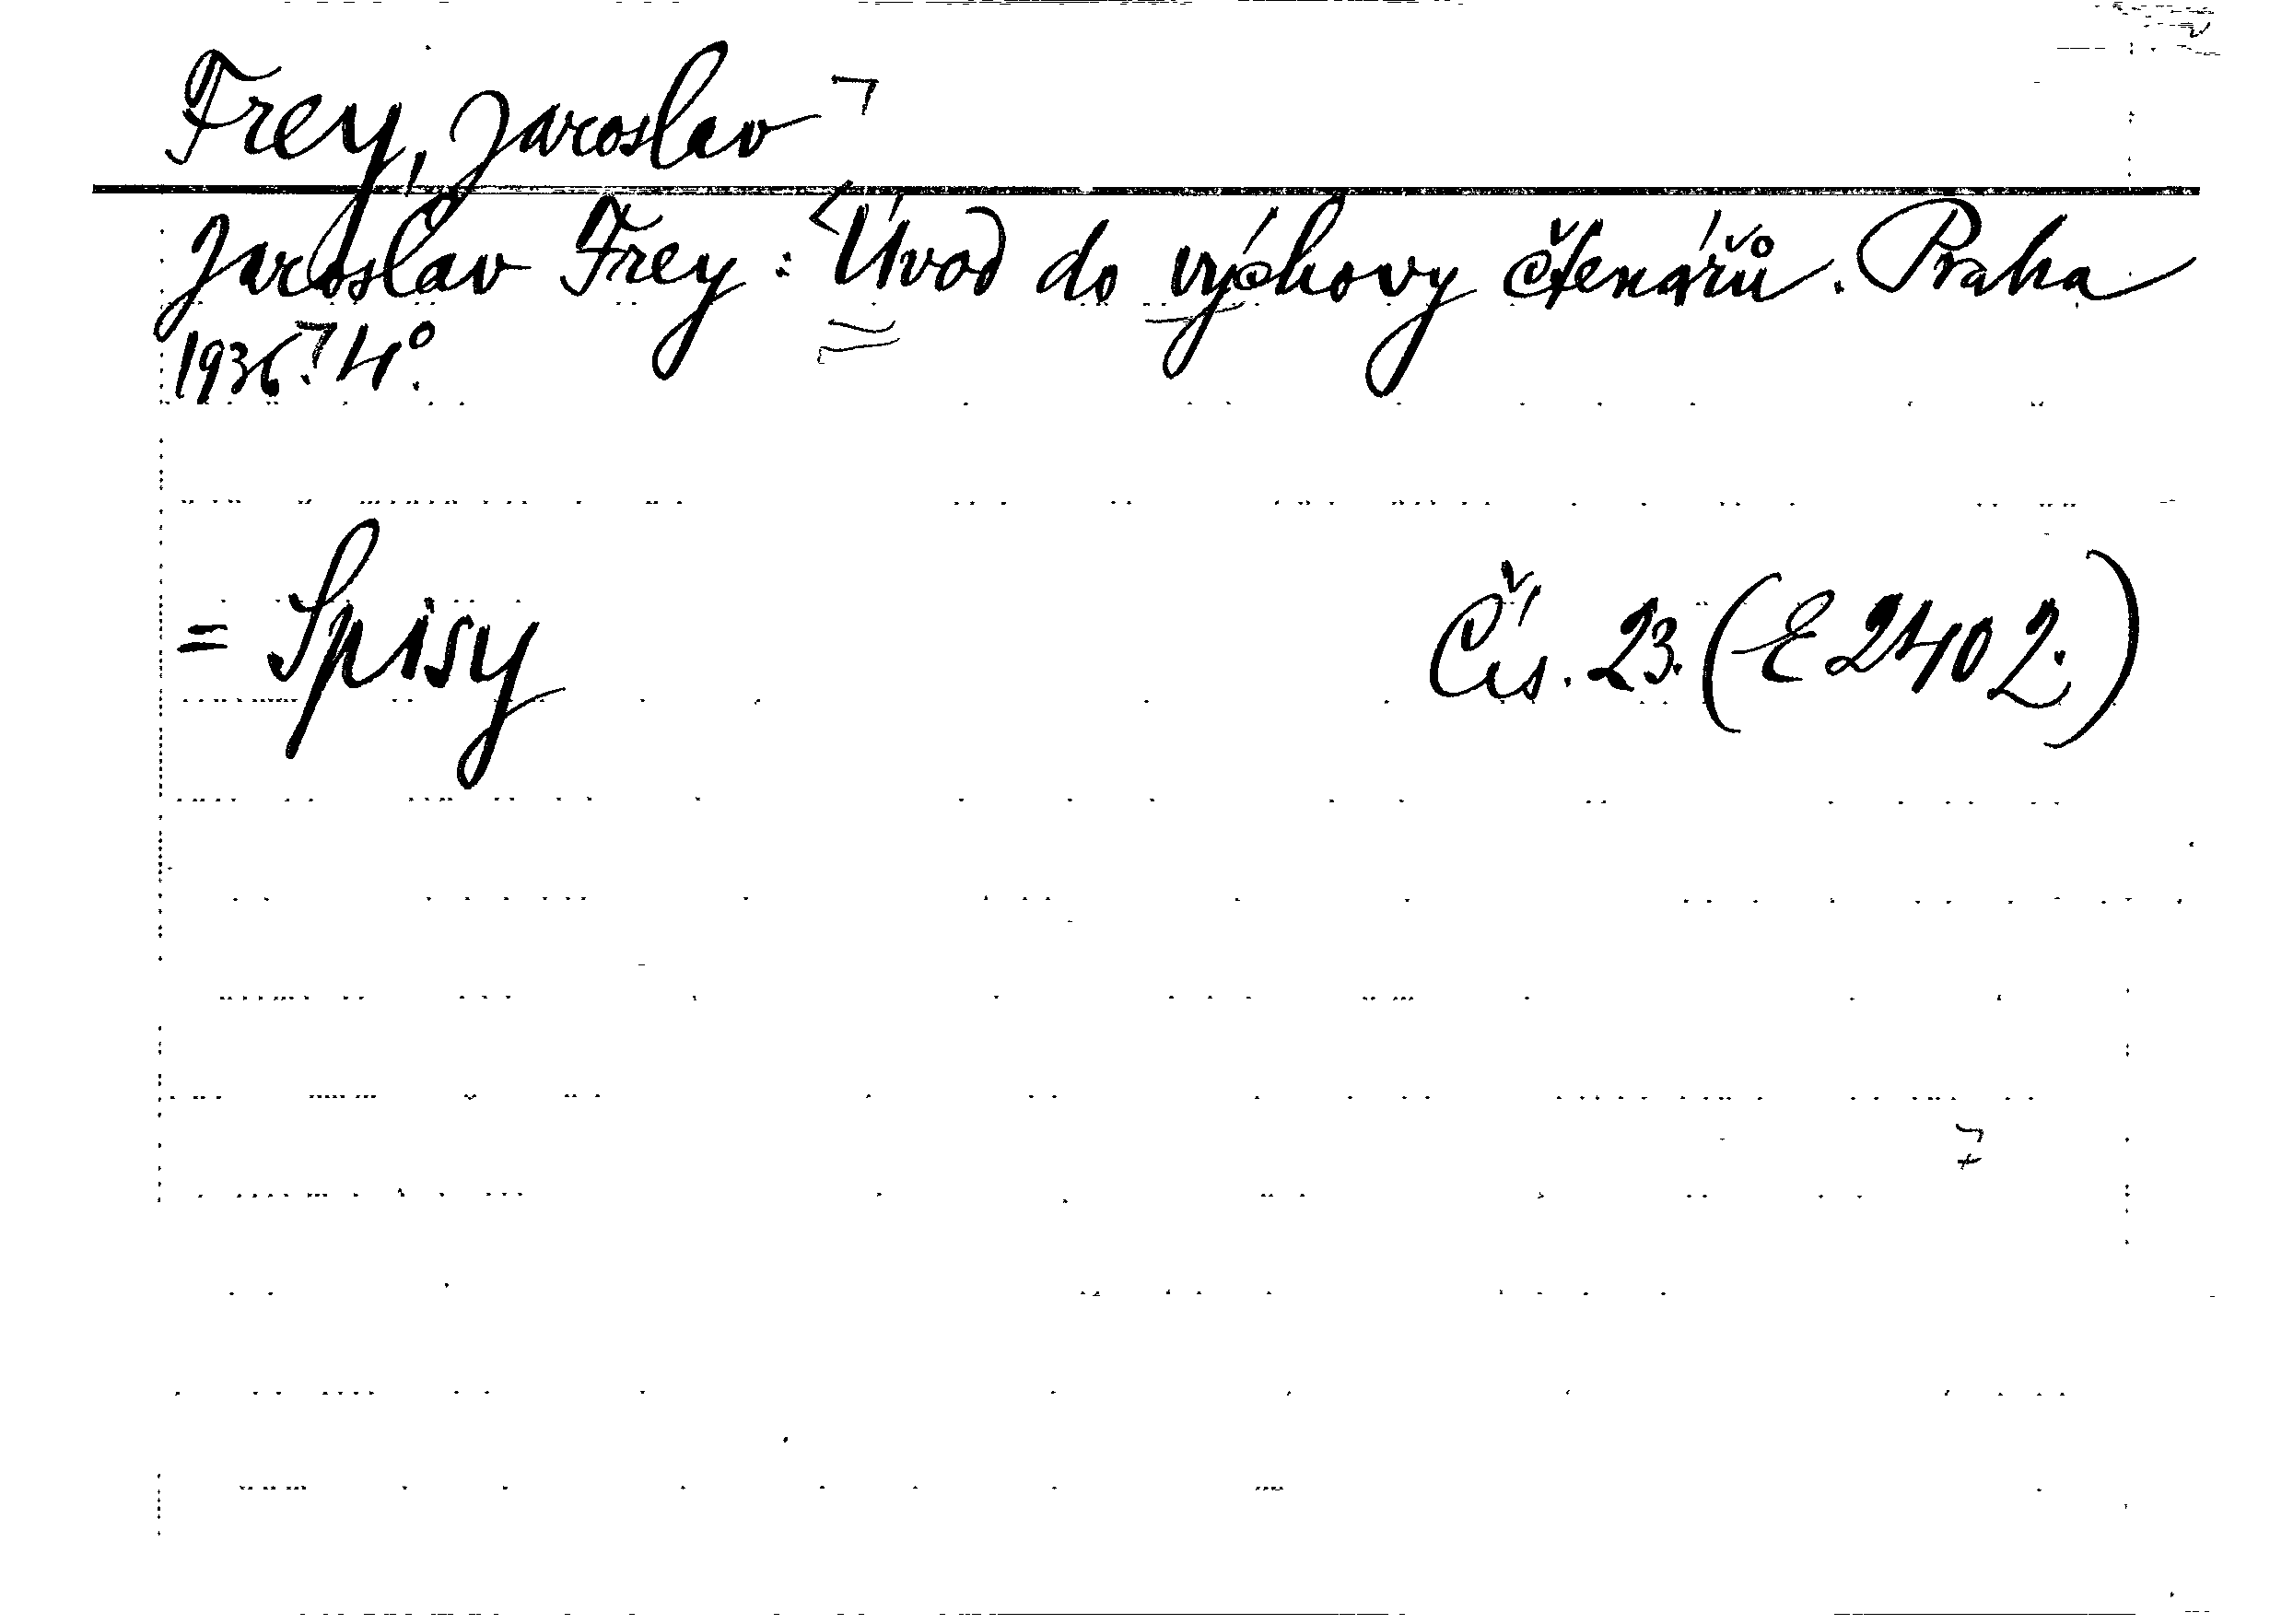 Frey, Jaroslav
Jaroslav Frey: Úvod do výchovy čtenářů. Praha
1936. 4°.
= Spisy Čís. 23. (E 2402.)